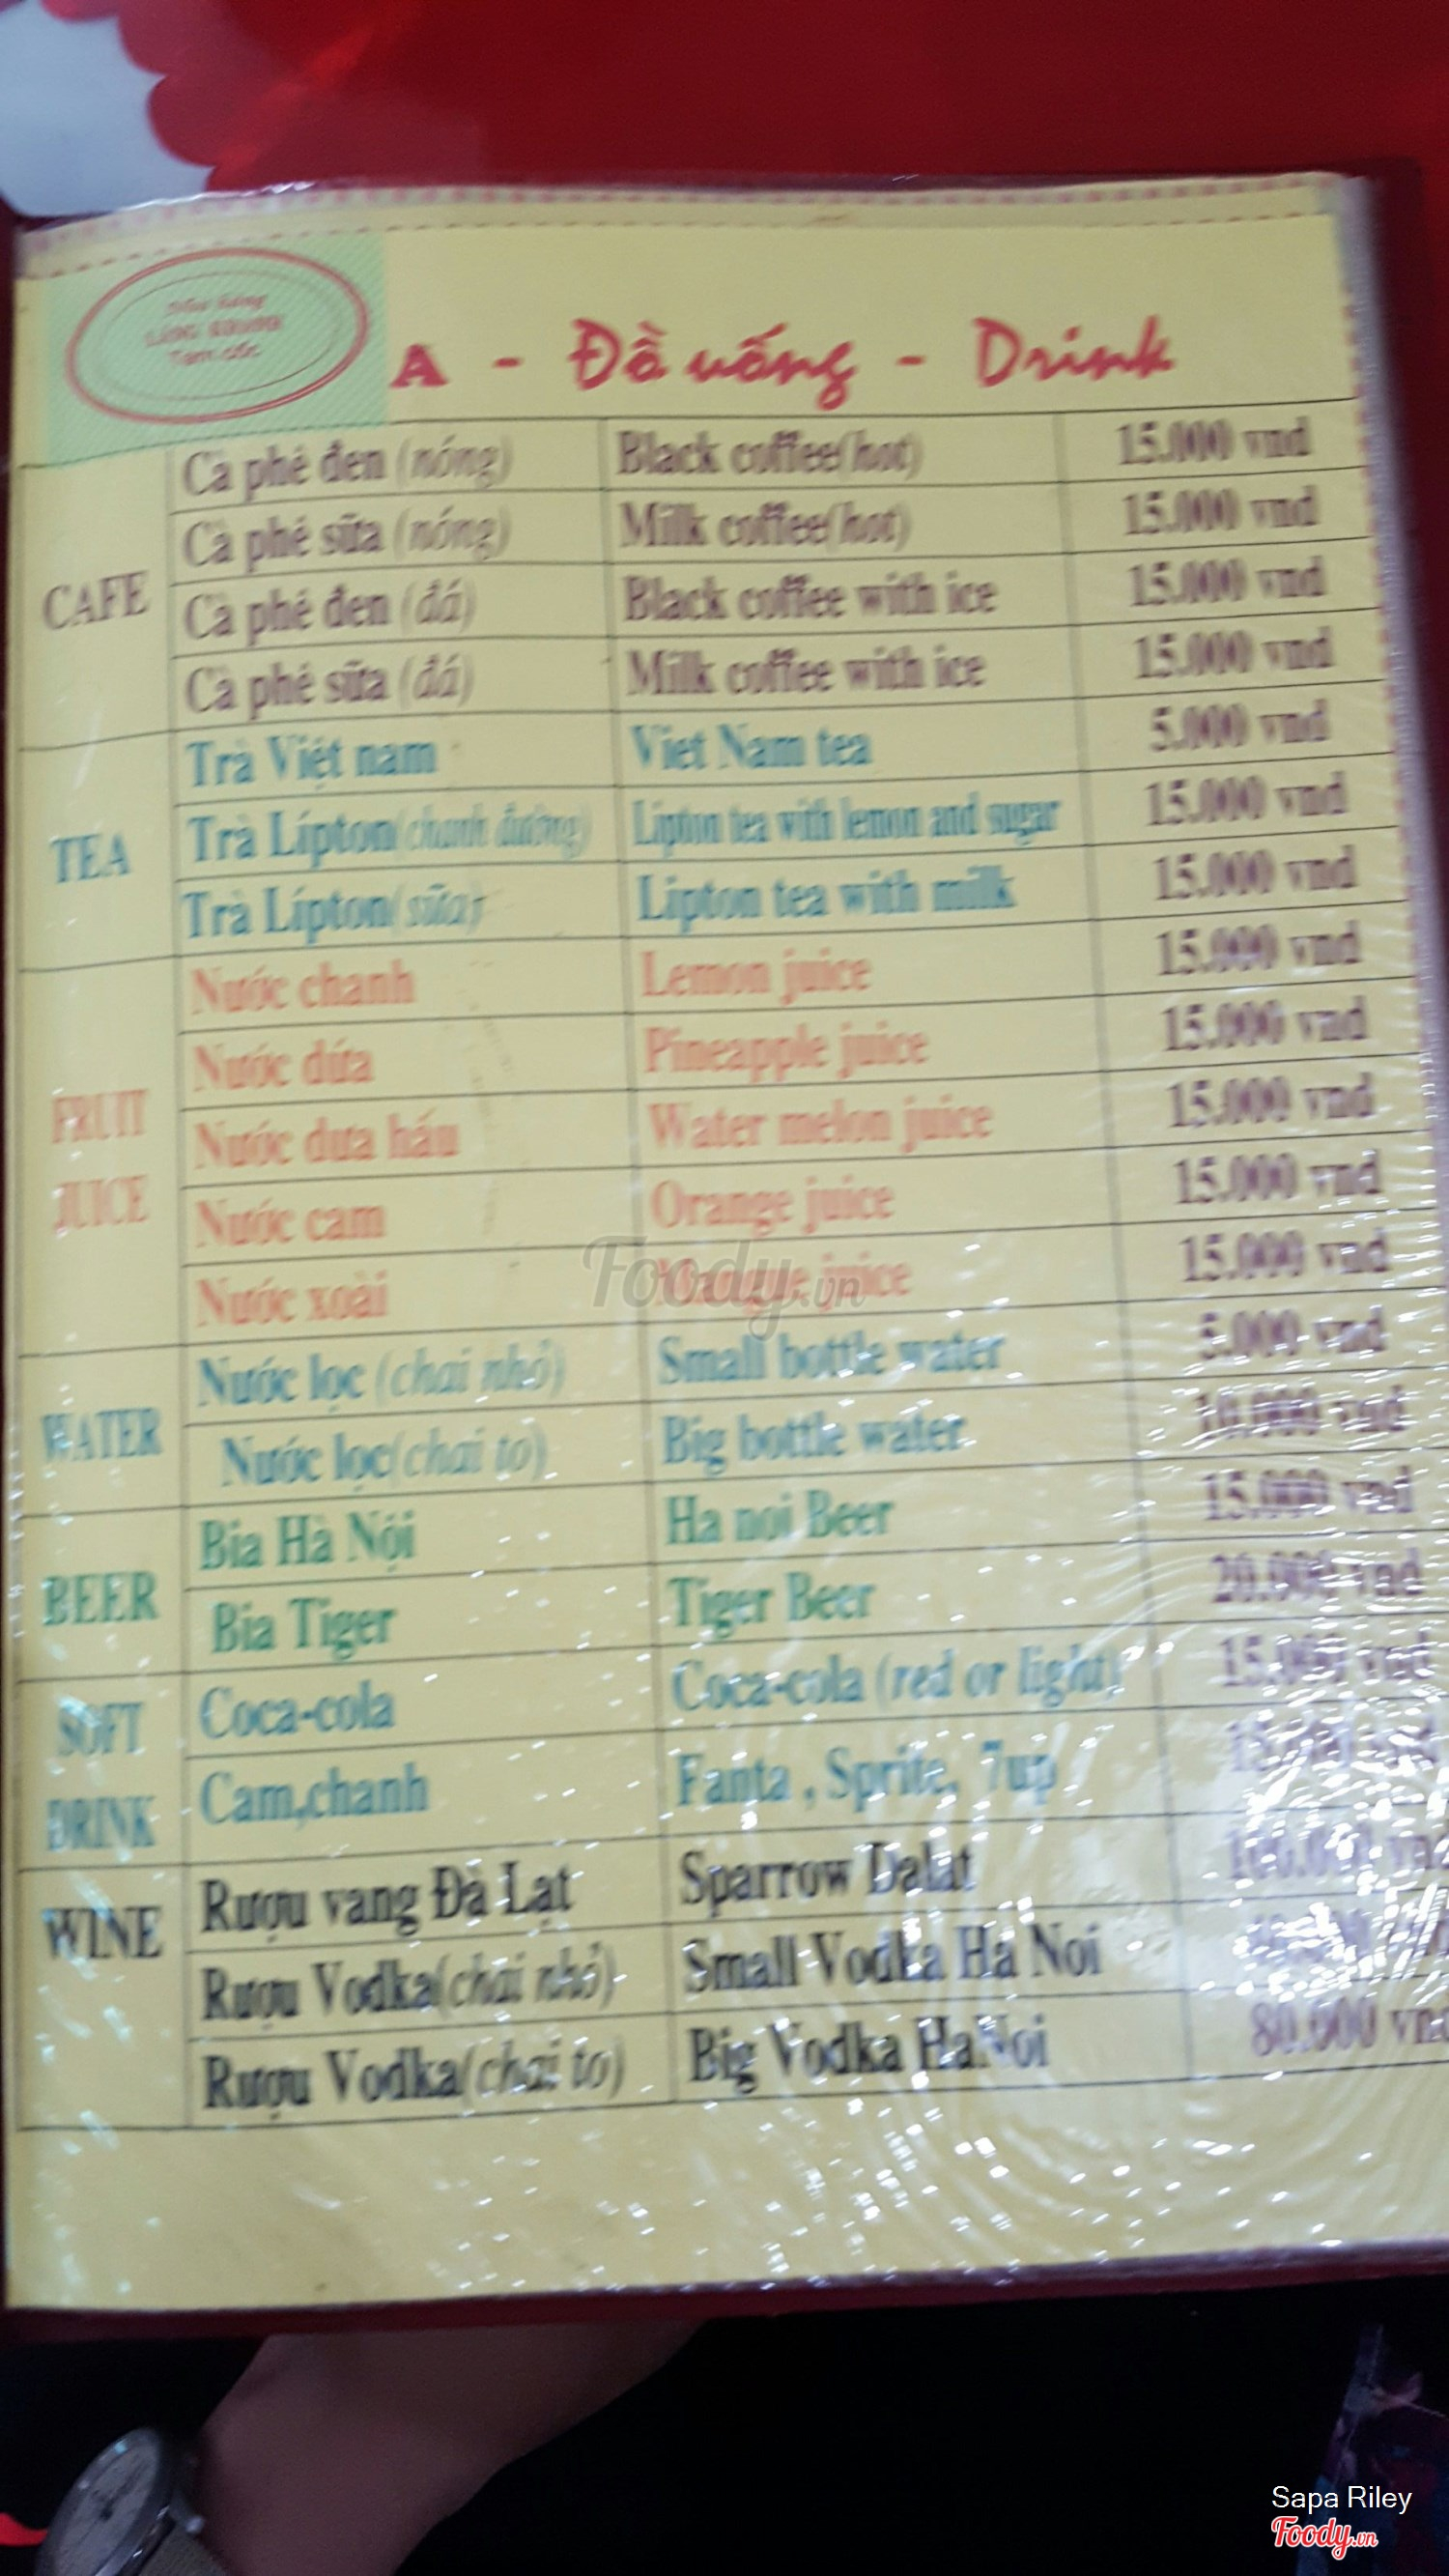 Nhà hàng
Tam cốc
A - Đồ uống - Drink
CAFE
Cà phê đen (nóng) Black coffee(hot) 15.000 vnd
Cà phê sữa (nóng) Milk coffee(hot) 15.000 vnd
Cà phê đen (đá) Black coffee with ice 15.000 vnd
Cà phê sữa (đá) Milk coffee with ice 15.000 vnd
TEA
Trà Việt nam Viet Nam tea 5.000 vnd
Trà Lípton(chanh đường) Lipton tea with lemon and sugar 15.000 vnd
Trà Lípton(sữa) Lipton tea with milk 15.000 vnd
FRUIT JUICE
Nước chanh Lemon juice 15.000 vnd
Nước dứa Pineapple juice 15.000 vnd
Nước dưa hấu Water melon juice 15.000 vnd
Nước cam Orange juice 15.000 vnd
Nước xoài juice 15.000 vnd
WATER
Nước lọc (chai nhỏ) Small bottle water 5.000 vnd
Nước lọc(chai to) Big bottle water 10.000 vnd
BEER
Bia Hà Nội Ha noi Beer 15.000 vnd
Bia Tiger Tiger Beer 20.000 vnd
SOFT DRINK
Coca-cola Coca-cola (red or light) 15.000 vnd
Cam,chanh Fanta , Sprite, 7up
WINE
Rượu vang Đà Lạt Sparrow Dalat
Rượu Vodka(chai nhỏ) Small Vodka Ha Noi
Rượu Vodka(chai to) Big Vodka HaNoi 80.000 vnd
Foody.vn
Sapa Riley
Foody.vn